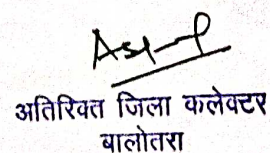 अतिरिक्त जिला कलेक्टर
बालोतरा